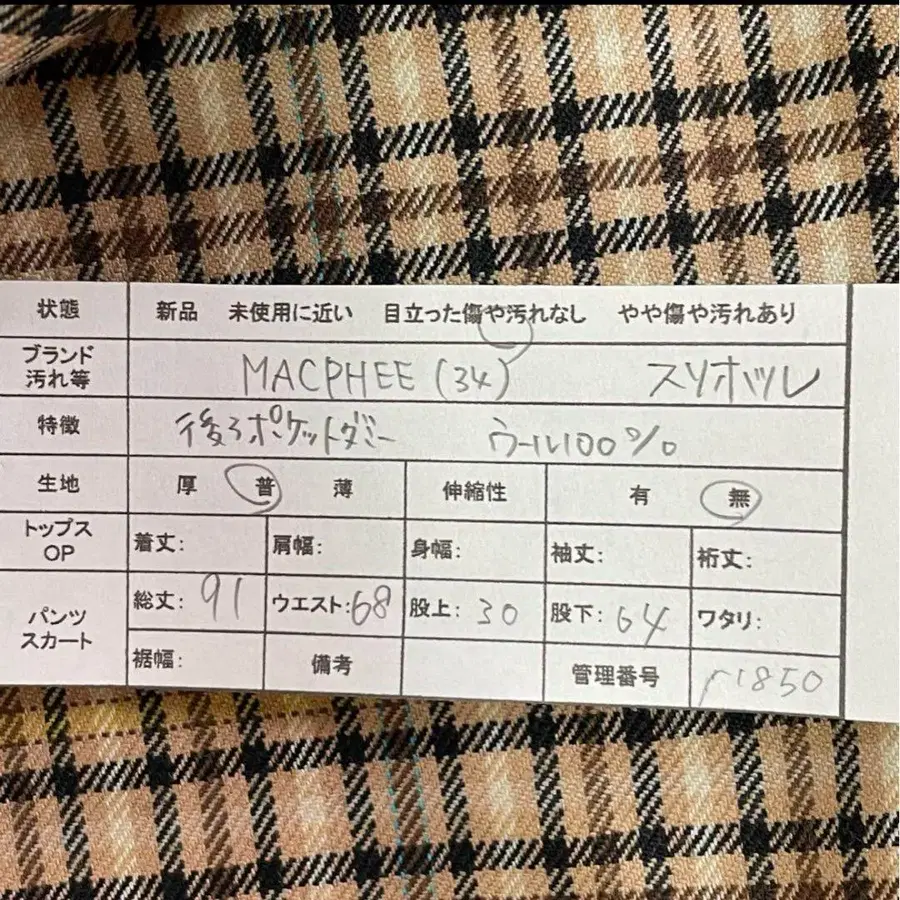 状態 新品 未使用に近い 目立った傷や汚れなし やや傷や汚れあり
ブランド
汚れ等 MACPHEE (34) スソホツレ
特徴 後ろポケットダミー ウール100%
生地 厚 普 薄 伸縮性 有 無
トップス
OP 着丈: 肩幅: 身幅: 袖丈: 裄丈:
パンツ
スカート 総丈: 91 ウエスト: 68 股上: 30 股下: 64 ワタリ:
裾幅: 備考 管理番号